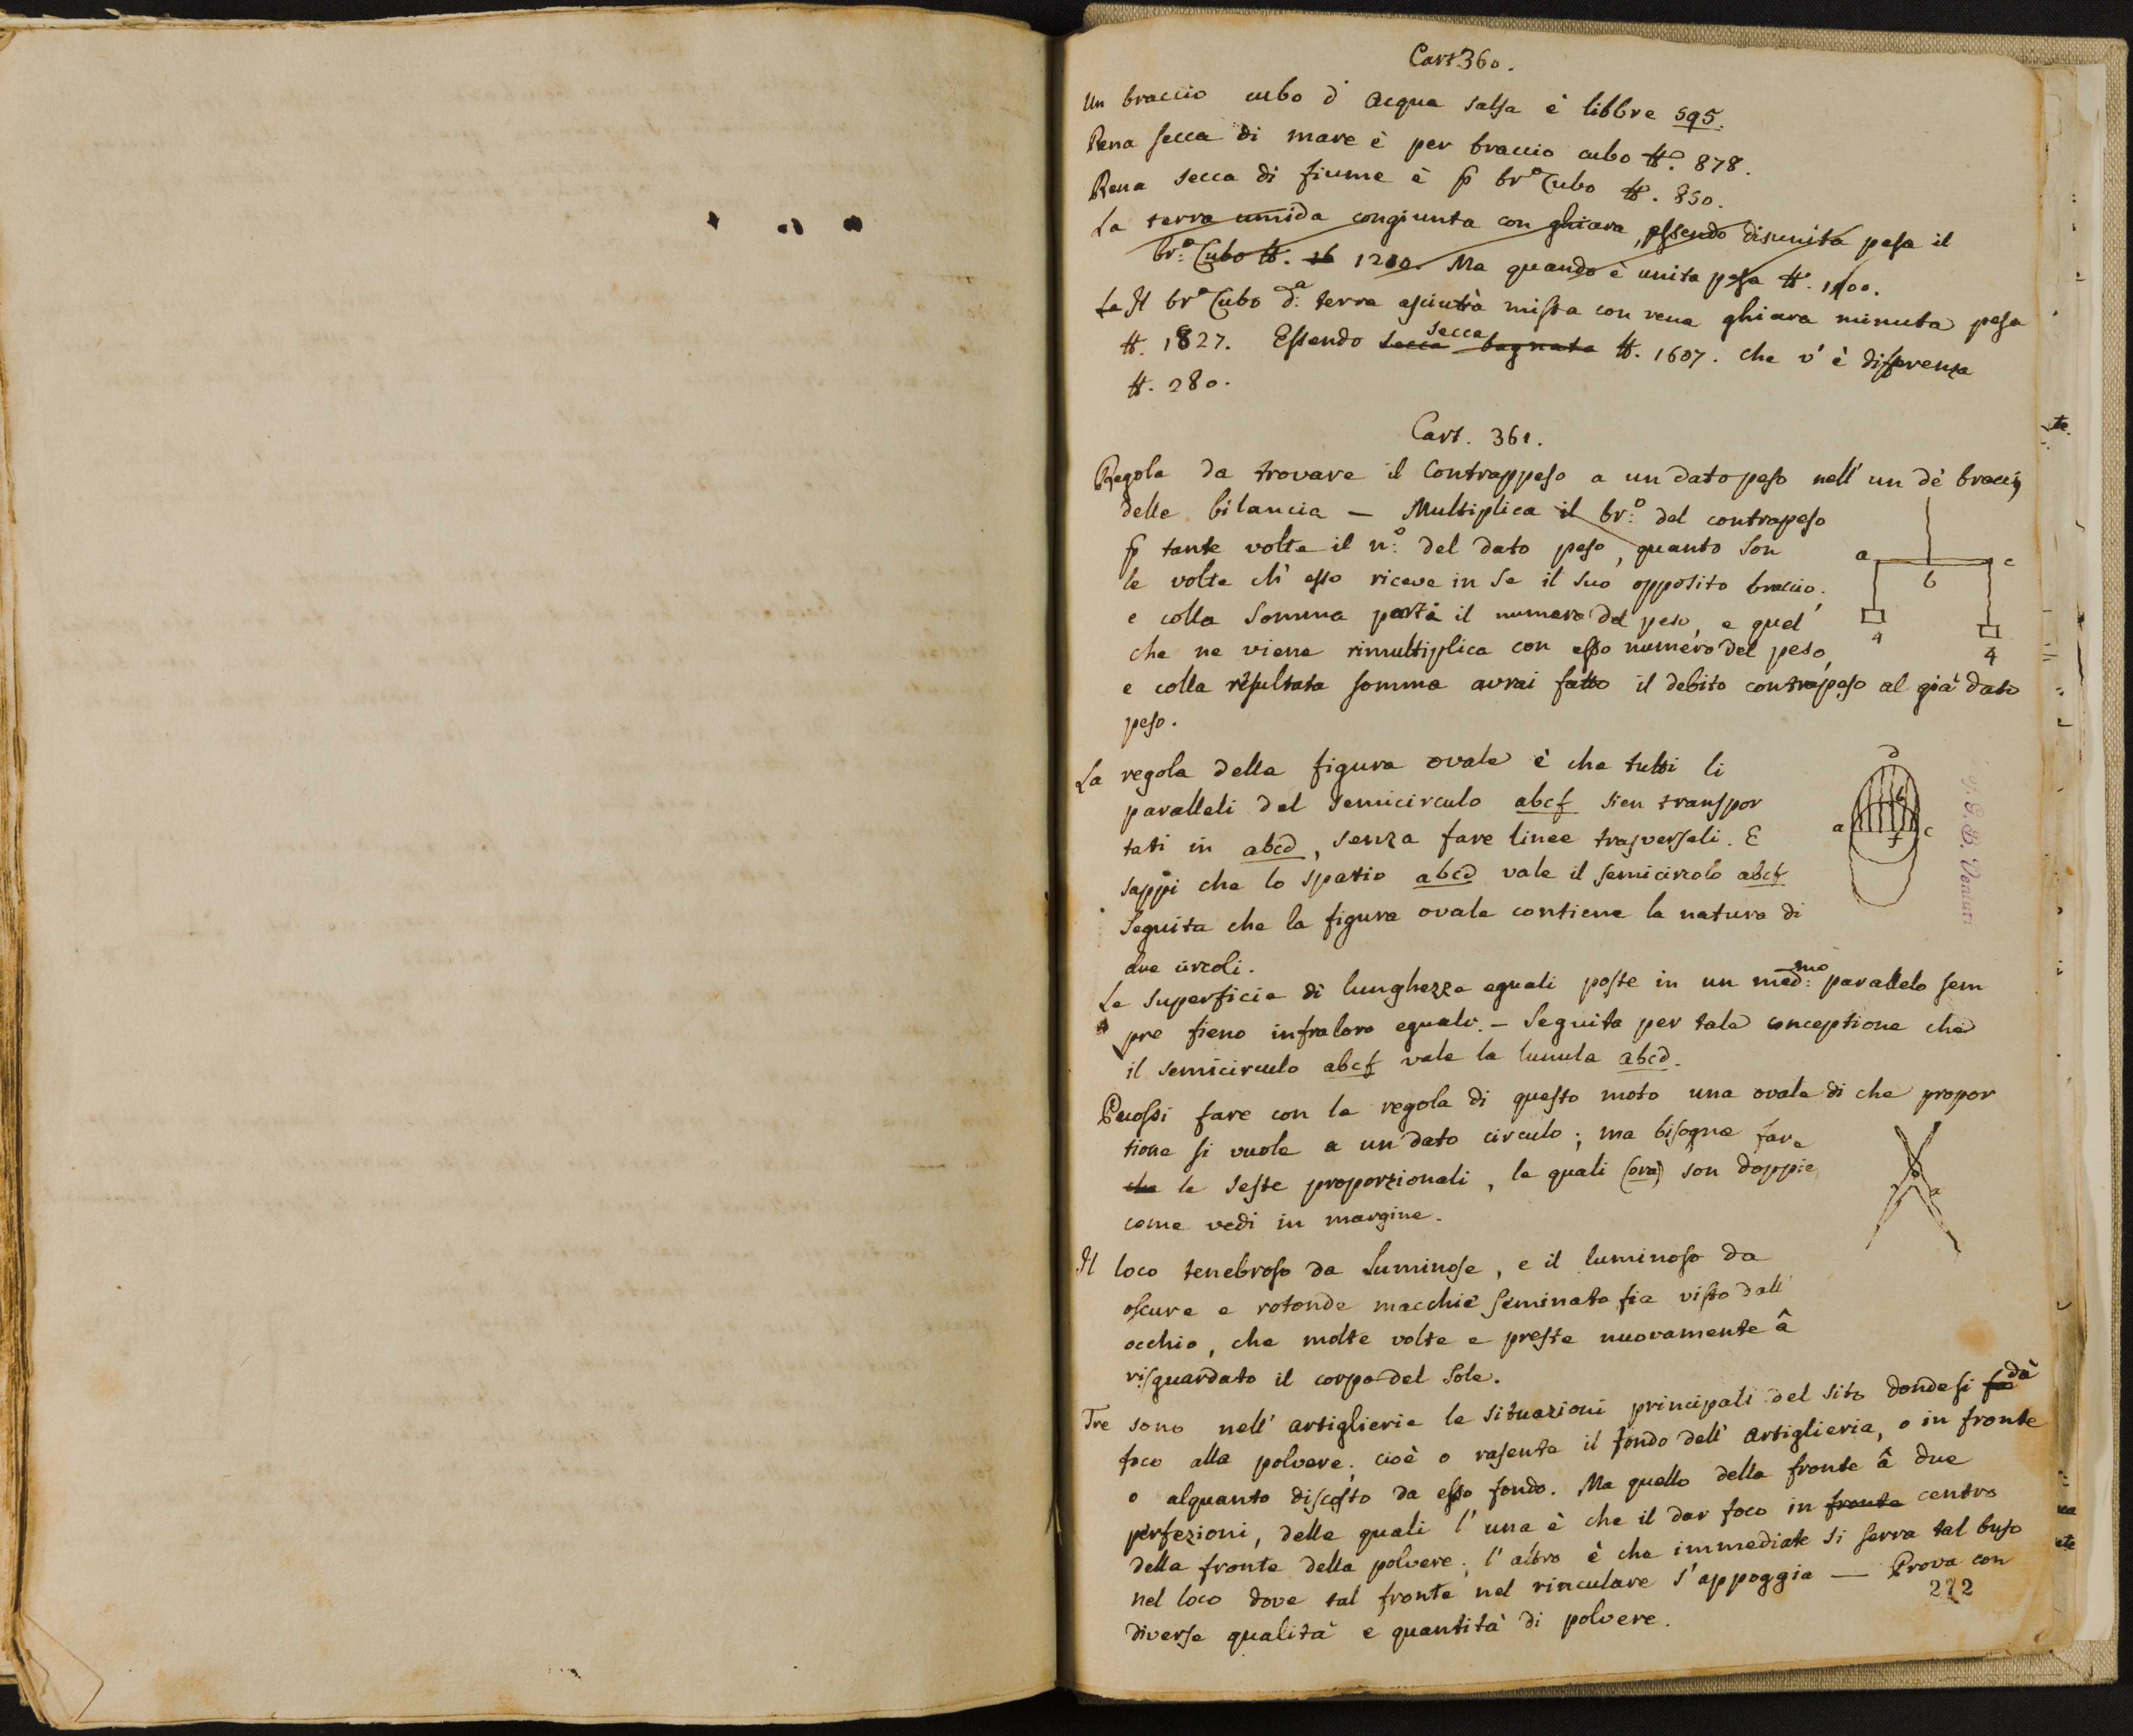 Cart 360.
Un braccio cubo d' acqua salsa è libbre 595.
Rena secca di mare è per braccio cubo ℔. 878.
Rena secca di fiume è p br.º Cubo ℔. 850.
La terra umida congiunta con ghiara, essendo disunita pesa il
br.º Cubo ℔. 16 1200. Ma quando è unita pesa ℔. 1400.
La Il br.º Cubo d.ª terra asciutta mista con rena ghiara minuta pesa
℔. 1827. Essendo secca bagnata secca ℔. 1607. che v' è differenza
℔. 280.
Cart. 361.
Regola da trovare il Contrappeso a un dato peso nell' un de' bracci
delle bilancia — Multiplica il br.º del contrapeso
p tante volte il n.º del dato peso, quanto son
le volte ch' esso riceve in se il suo opposito braccio,
e colla somma parti il numero del peso, e quel
che ne viene rimultiplica con esso numero del peso,
e colla resultata somma avrai fatto il debito contrapeso al già dato
peso.
a b c
4 4
La regola della figura ovale è che tutti li
paralleli del semicirculo abcf sien transpor
tati in abcd, senza fare linee trasversali. E
sappi che lo spatio abcd vale il semicircolo abcf
Seguita che la figura ovale contiene la natura di
due circoli.
d
a b c
f
G. B. Venturi
Le superficie di lunghezze eguali poste in un med.mo parallelo sem
pre fieno infraloro eguali. — Seguita per tale conceptione che
il semicirculo abcf vale la lunula abcd.
Puossi fare con la regola di questo moto una ovale di che propor
tione si vuole a un dato circulo; ma bisogna fare
che le seste proporzionali, le quali (ora) son doppie
come vedi in margine.
a
Il loco tenebroso da luminose, e il luminoso da
oscure e rotonde macchie seminato fia visto dall'
occhio, che molte volte e preste nuovamente â
risguardato il corpo del Sole.
Tre sono nell' artiglierie le situazioni principali del sito donde si fa dà
foco alla polvere; cioè o rasente il fondo dell' Artiglieria, o in fronte
o alquanto discosto da esso fondo. Ma quello della fronte â due
perfezioni, delle quali l' una è che il dar foco in fronte centro
della fronte della polvere; l' altro è che immediate si serra tal buso
nel loco dove tal fronte nel rinculare s' appoggia — Prova con
diverse qualità e quantità di polvere.
272